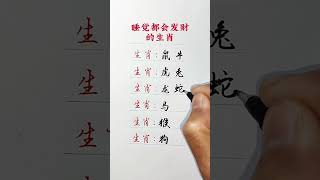 睡觉都会发财
的生肖
生肖:鼠牛
生肖:虎兔
生肖:龙蛇
生肖:马
生肖:猴
生肖:狗